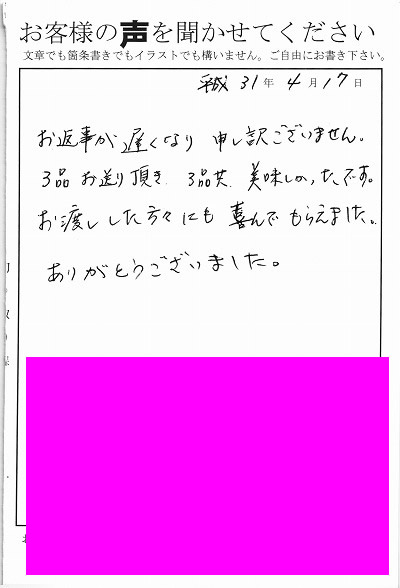 お客様の声を聞かせてください
文章でも箇条書きでもイラストでも構いません。ご自由にお書き下さい。
平成 31年 4月17日
お返事が遅くなり 申し訳ございません。
3品 お送り頂き 3品共 美味しかったです。
お渡しした方々にも 喜んで もらえました。
ありがとうございました。